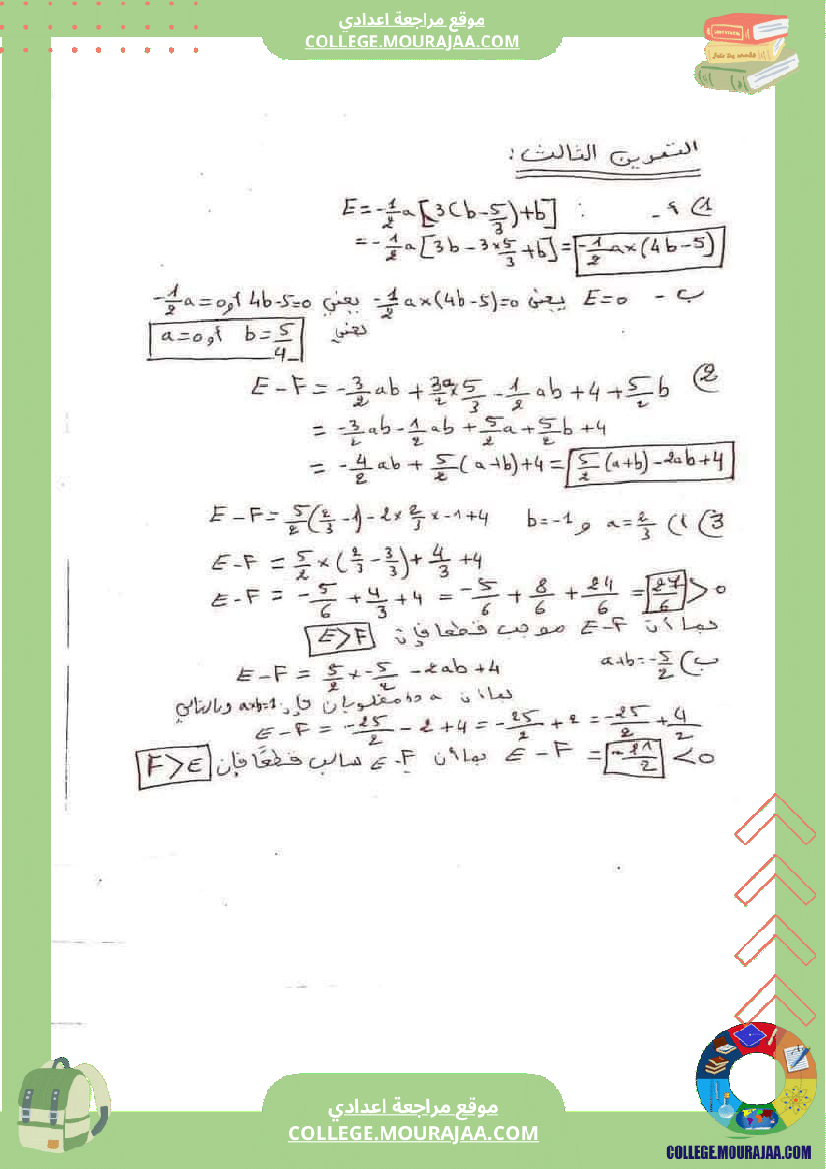 موقع مراجعة اعدادي
COLLEGE.MOURAJAA.COM
التمرين الثالث :
1) أ - : E = -1/2 a [3(b - 5/3) + b]
= -1/2 a [3b - 3×5/3 + b] = -1/2 a×(4b-5)
ب - E=0 يعني -1/2 a×(4b-5)=0 يعني 4b-5=0 أو -1/2 a=0
يعني b = 5/4 أو a=0
2) E - F = -3/2 ab + 3a/2 × 5/3 - 1/2 ab + 4 + 5/2 b
= -3/2 ab - 1/2 ab + 5/2 a + 5/2 b + 4
= -4/2 ab + 5/2 (a+b) + 4 = 5/2 (a+b) - 2ab + 4
3) أ) a = 2/3 و b=-1 E - F = 5/2 (2/3 - 1) - 2 × 2/3 × -1 + 4
E - F = 5/2 × (2/3 - 3/3) + 4/3 + 4
E - F = -5/6 + 4/3 + 4 = -5/6 + 8/6 + 24/6 = 27/6 > 0
بما أن E-F موجب قطعا فإن E>F
ب) a+b = -5/2 E - F = 5/2 × -5/2 - 2ab + 4
بما أن a و b مقلوبان فإن a×b=1 وبالتالي
E - F = -25/2 - 2 + 4 = -25/2 + 2 = -25/2 + 4/2
E - F = -21/2 < 0 بما أن E-F سالب قطعًا فإن F>E
موقع مراجعة اعدادي
COLLEGE.MOURAJAA.COM
COLLEGE.MOURAJAA.COM